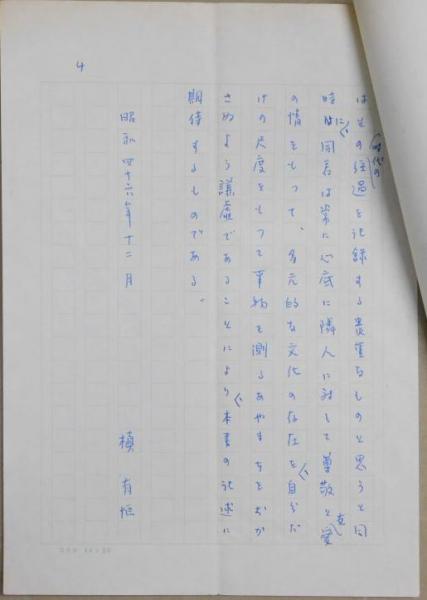 4
はその経過を記録する貴重なものと思うと同
時代の
時に同君は常に心底に隣人に対して尊敬と愛
の情をもって、多元的な文化の存在を自分だ
けの尺度をもって事物を測るあやまちをおか
さぬよう謙虚であることにより本書の記述に
期待するものである。
昭和四十六年十二月
槇有恒